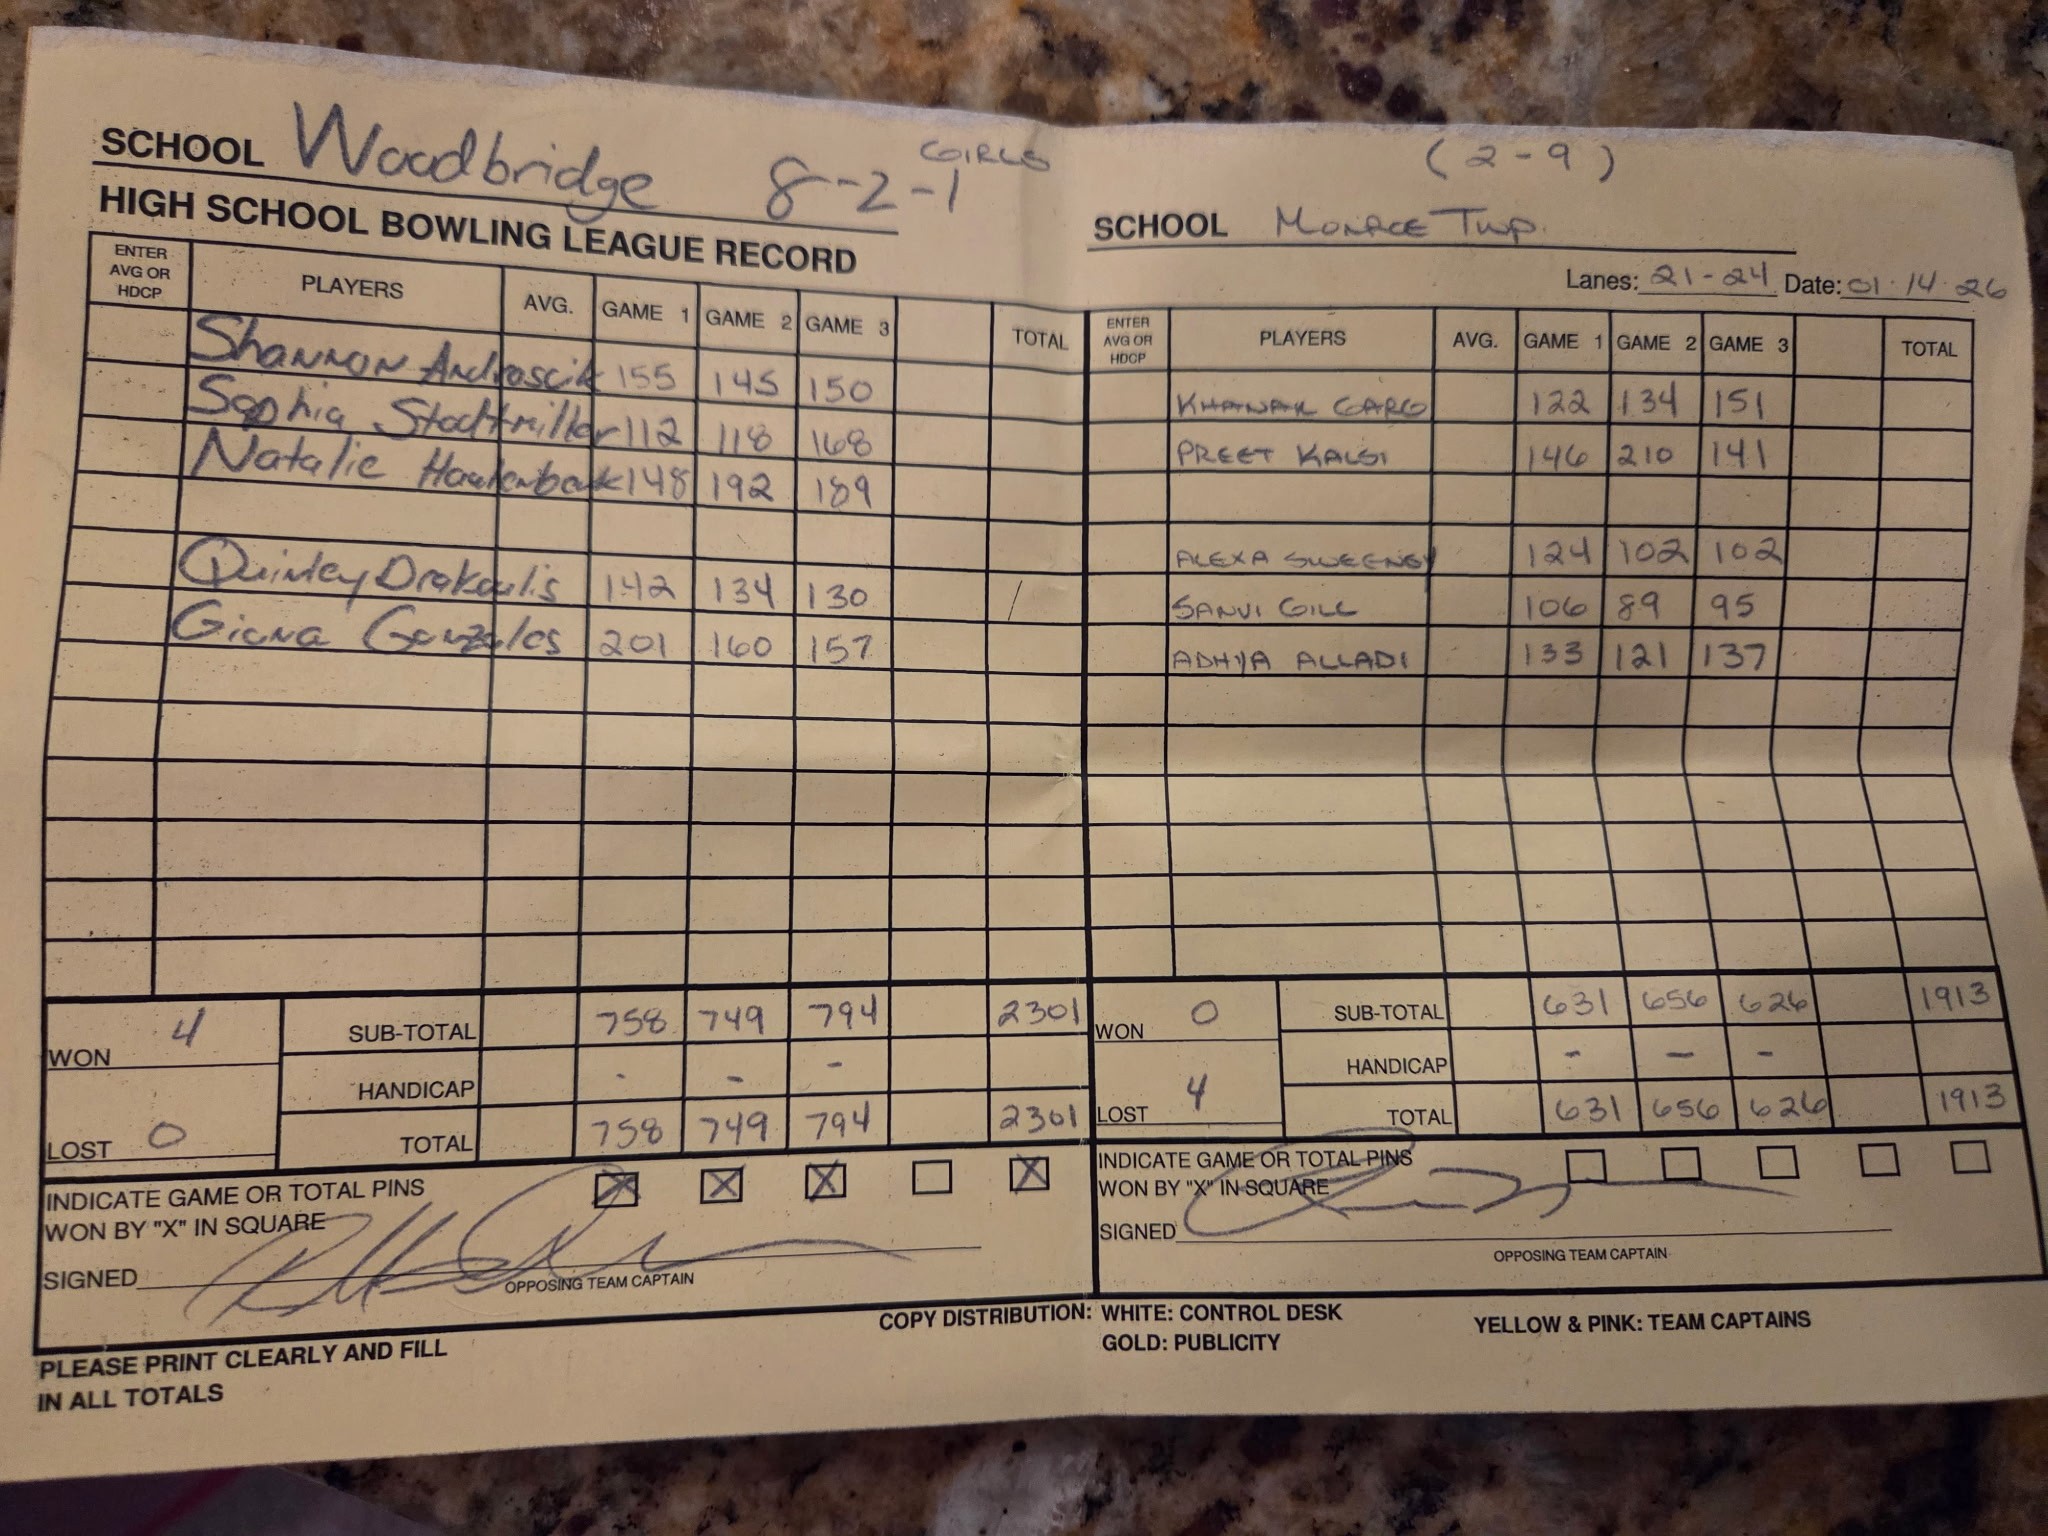 SCHOOL Woodbridge 8-2-1 GIRLS
HIGH SCHOOL BOWLING LEAGUE RECORD
ENTER AVG OR HDCP PLAYERS AVG. GAME 1 GAME 2 GAME 3 TOTAL
Shannon Androscik 155 145 150
Sophia Stadtmiller 112 118 168
Natalie 148 192 189
Quinley Drakoulis 142 134 130
Giana Gonzales 201 160 157
WON 4
LOST 0
SUB-TOTAL 758 749 794 2301
HANDICAP - - -
TOTAL 758 749 794 2301
INDICATE GAME OR TOTAL PINS
WON BY "X" IN SQUARE X X X X
SIGNED
OPPOSING TEAM CAPTAIN
(2-9)
SCHOOL Monroe Twp.
Lanes: 21-24 Date: 01.14.26
ENTER AVG OR HDCP PLAYERS AVG. GAME 1 GAME 2 GAME 3 TOTAL
KHANAK GARG 122 134 151
PREET KALSI 146 210 141
ALEXA SWEENEY 124 102 102
SANVI GILL 106 89 95
ADHYA ALLADI 133 121 137
WON 0
LOST 4
SUB-TOTAL 631 656 626 1913
HANDICAP - - -
TOTAL 631 656 626 1913
INDICATE GAME OR TOTAL PINS
WON BY "X" IN SQUARE
SIGNED
OPPOSING TEAM CAPTAIN
PLEASE PRINT CLEARLY AND FILL
IN ALL TOTALS
COPY DISTRIBUTION: WHITE: CONTROL DESK YELLOW & PINK: TEAM CAPTAINS
GOLD: PUBLICITY